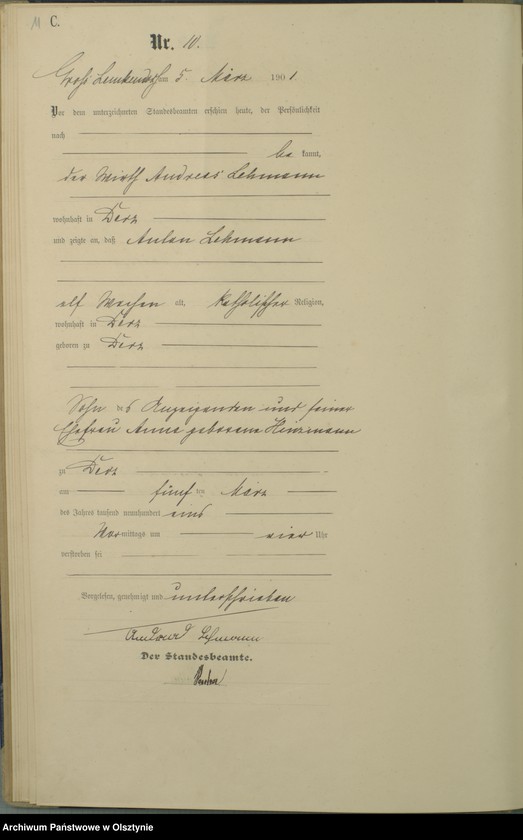 11 C.
Nr. 10.
Gross Lemkendorf am 5. März 1901.
Vor dem unterzeichneten Standesbeamten erschien heute, der Persönlichkeit
nach
be kannt,
der Wirth Andreas Lehmann
wohnhaft in Derz
und zeigte an, daß Anton Lehmann
elf Wochen alt, katholischer Religion,
wohnhaft in Derz
geboren zu Derz
Sohn des Anzeigenden und seiner
Ehefrau Anna geborene Heinzmann
zu Derz
am fünf ten März
des Jahres tausend neunhundert eins
Vor mittags um vier Uhr
verstorben sei
Vorgelesen, genehmigt und unterschrieben
Andreas Lehmann
Der Standesbeamte.
Archiwum Państwowe w Olsztynie